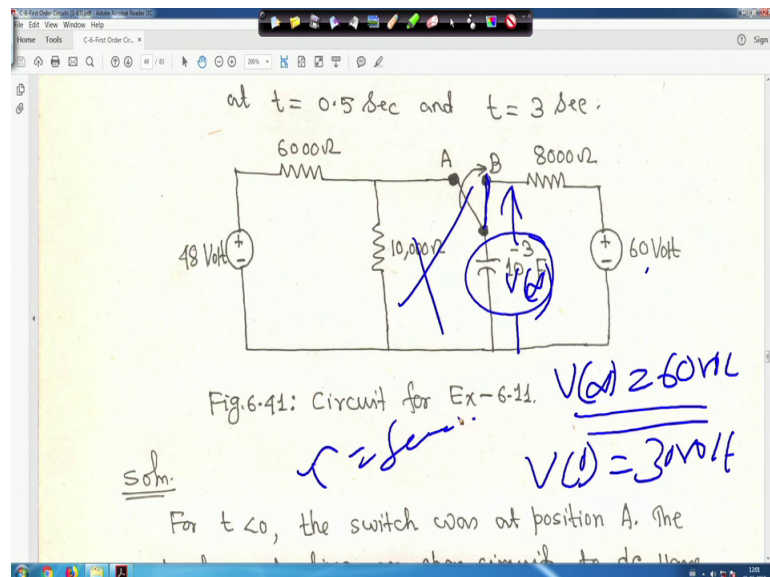 C-6-First Order Circuits [1-83].pdf - Adobe Acrobat Reader DC
File Edit View Window Help
Home Tools C-6-First Order Cir... × Sign
49 / 83 200%
at t = 0.5 Sec and t = 3 Sec.
6000Ω A B 8000Ω
48 Volt + - 10,000Ω 10⁻³ F V(∞) + - 60 Volt
Fig.6.41: Circuit for Ex-6.11.
V(∞) = 60 volt
V(0) = 30 volt
soln.
For t<0, the switch was at position A. The
12:01